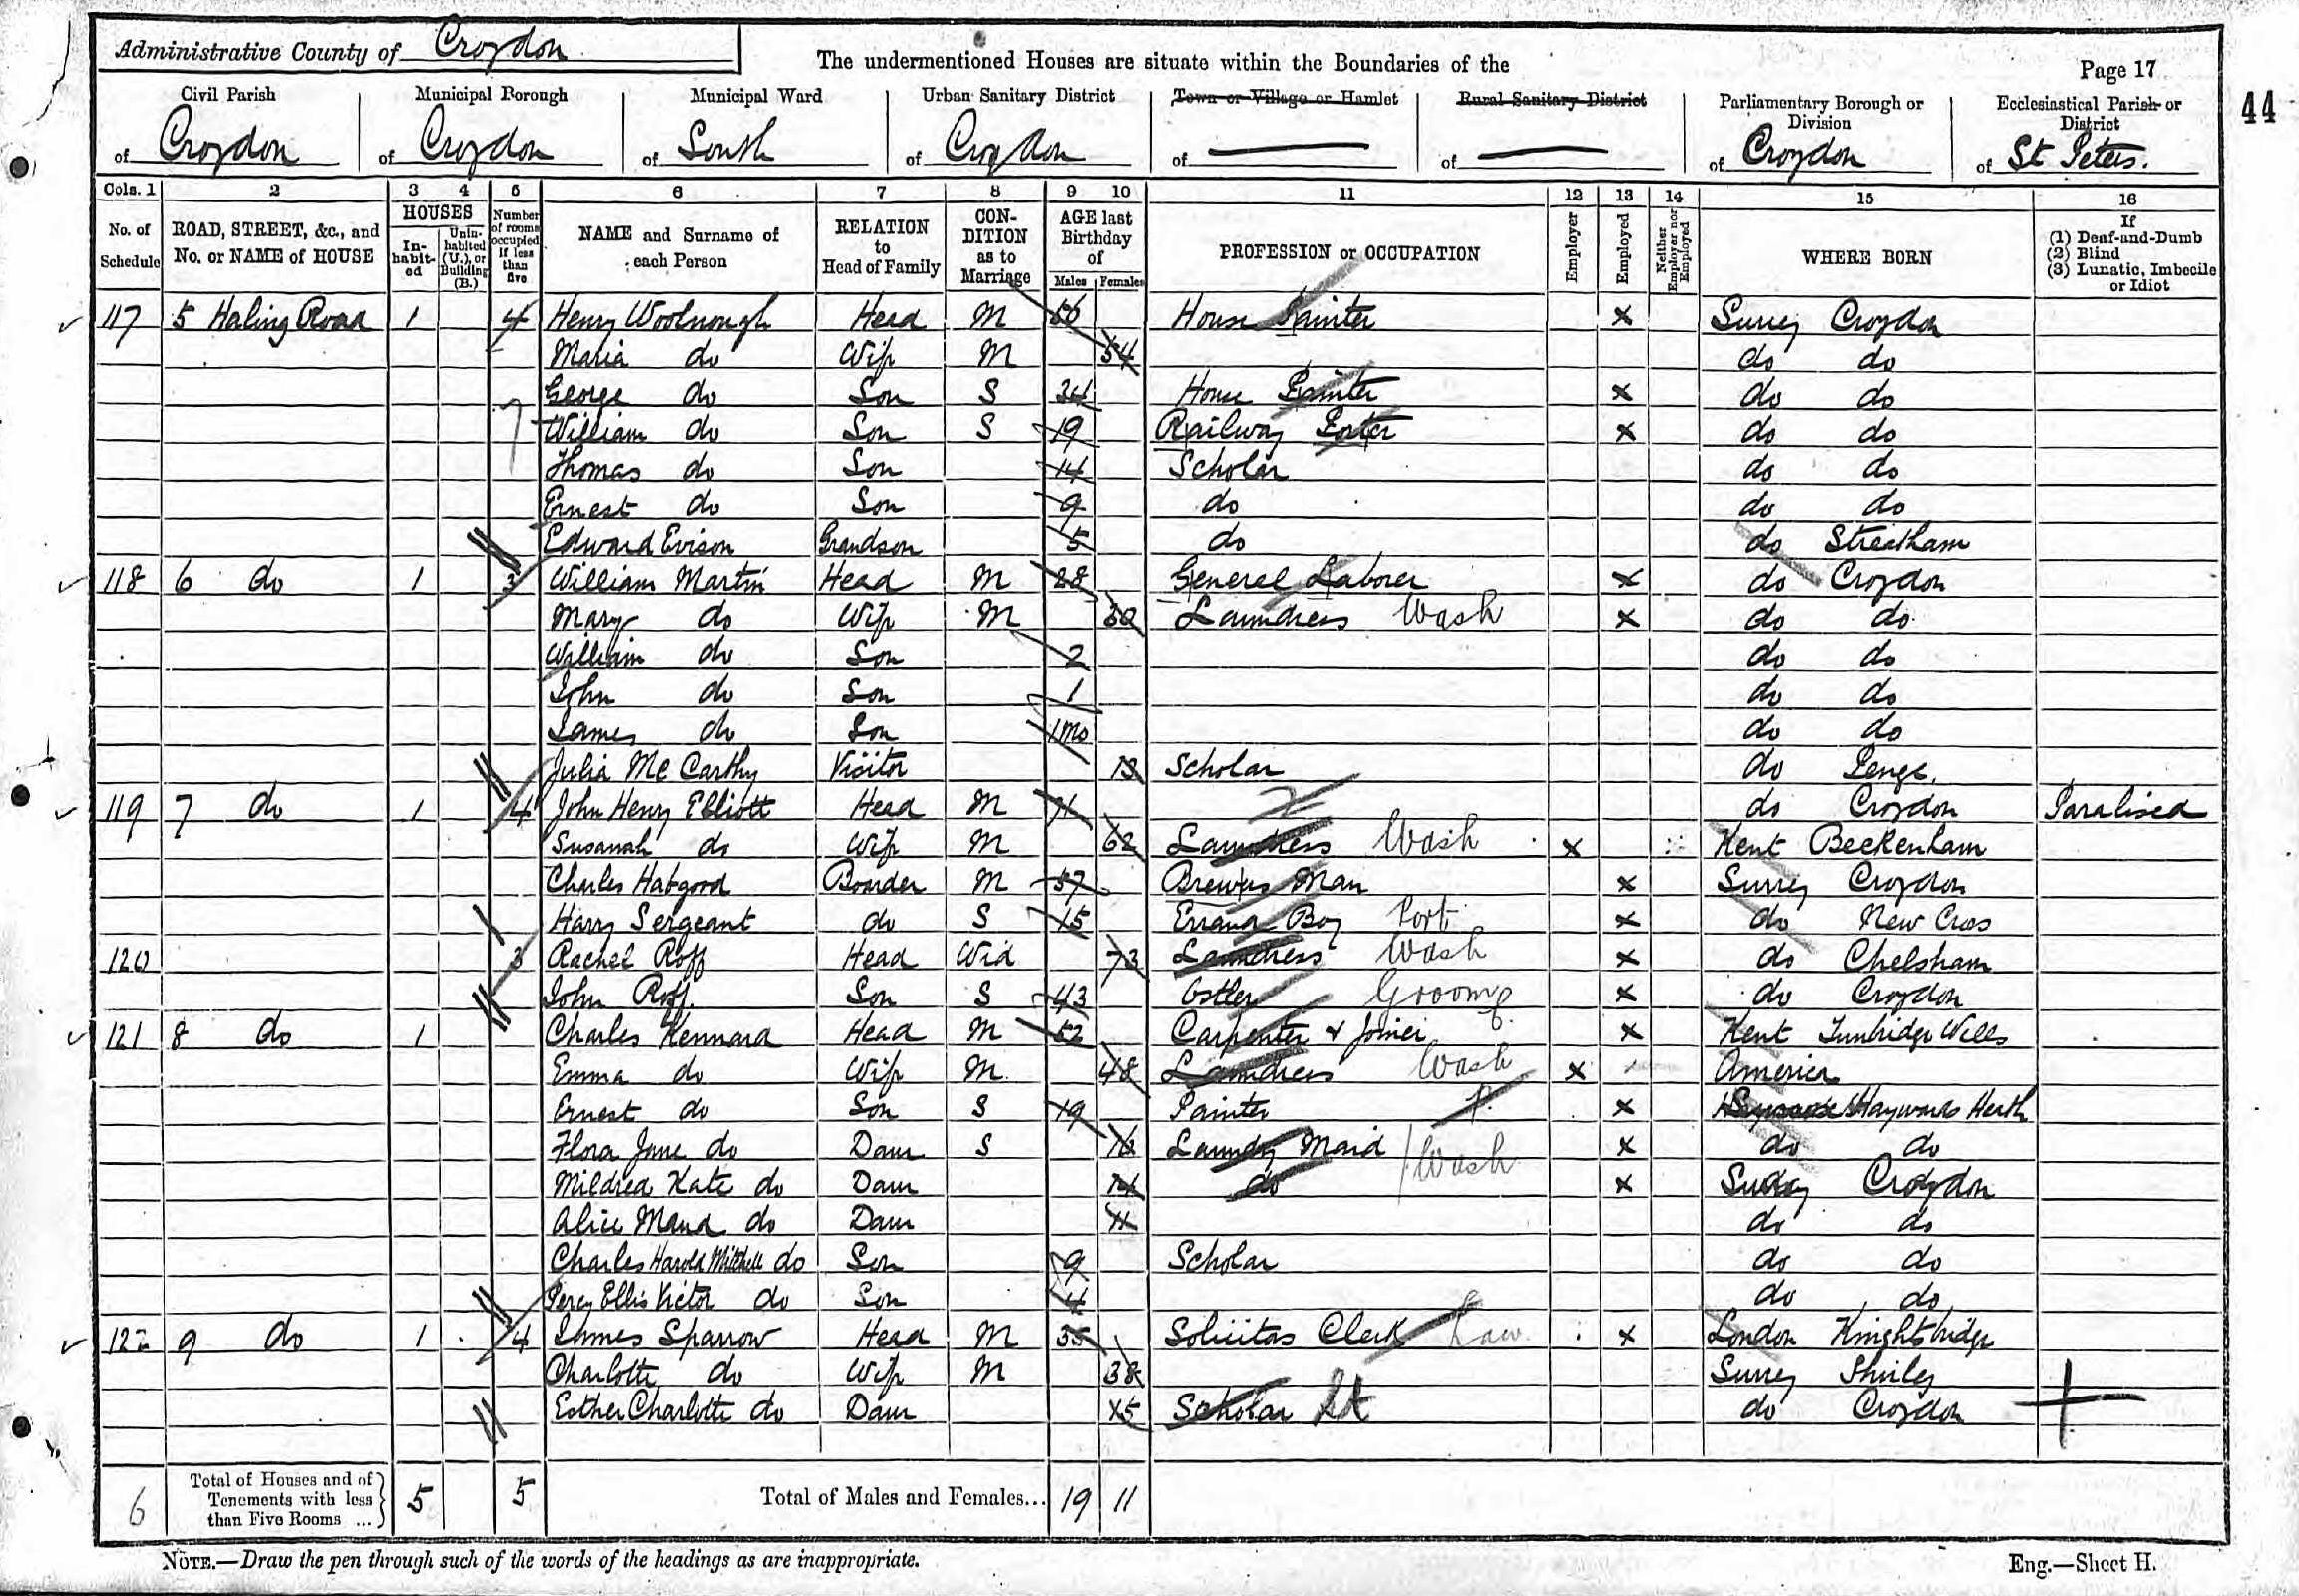 Administrative County of Croydon
The undermentioned Houses are situate within the Boundaries of the
Page 17
44
Civil Parish Municipal Borough Municipal Ward Urban Sanitary District Town or Village or Hamlet Rural Sanitary District Parliamentary Borough or Division Ecclesiastical Parish or District
of Croydon of Croydon of South of Croydon of of of Croydon of St Peters.
Cols. 1 2 3 4 5 6 7 8 9 10 11 12 13 14 15 16
No. of Schedule ROAD, STREET, &c., and No. or NAME of HOUSE HOUSES In-habit-ed Unin-habited (U.), or Building (B.) Number of rooms occupied if less than five NAME and Surname of each Person RELATION to Head of Family CON-DITION as to Marriage AGE last Birthday of Males Females PROFESSION or OCCUPATION Employer Employed Neither Employer nor Employed WHERE BORN If (1) Deaf-and-Dumb (2) Blind (3) Lunatic, Imbecile or Idiot
117 5 Haling Road 1 4 Henry Woolnough Head M 56 House Painter X Surrey Croydon
Maria do Wife M 54 do do
George do Son S House Painter X do do
William do Son S 19 Railway Porter X do do
Thomas do Son 14 Scholar do do
Ernest do Son 9 do do do
Edward Evison Grandson 5 do do Streatham
118 6 do 1 3 William Martin Head M 28 General Laborer X do Croydon
Mary do Wife M 30 Laundress Wash X do do
William do Son 2 do do
John do Son 1 do do
James do Son 1mo do do
Julia Mc Carthy Visitor 13 Scholar do Penge.
119 7 do 1 4 John Henry Elliott Head M 71 do Croydon Paralised
Susanah do Wife M 62 Laundress Wash X Kent Beckenham
Charles Habgood Boarder M 57 Brewers Man X Surrey Croydon
Harry Sergeant do S 15 Errand Boy Port X do New Cros
120 3 Rachel Roff Head Wid 73 Laundress Wash X do Chelsham
John Roff. Son S 43 Ostler Groom X do Croydon
121 8 do 1 Charles Kennard Head M 52 Carpenter & Joiner X Kent Tunbridge Wells
Emma do Wife M 48 Laundress Wash X America
Ernest do Son S 19 Painter P. X Haywards Heath
Flora Jane do Daur S Laundry Maid Wash X do do
Mildred Kate do Daur 14 do X Surrey Croydon
Alice Maud do Daur 11 do do
Charles Harold Mitchell do Son 9 Scholar do do
Percy Ellis Victor do Son 4 do do
122 9 do 1 4 James Sparrow Head M 35 Solicitos Clerk Law X London Knightbridge
Charlotte do Wife M 38 Surrey Shirley
Esther Charlotte do Daur 15 Scholar St do Croydon
6 Total of Houses and of Tenements with less than Five Rooms ... 5 5 Total of Males and Females... 19 11
NOTE.—Draw the pen through such of the words of the headings as are inappropriate.
Eng.—Sheet H.